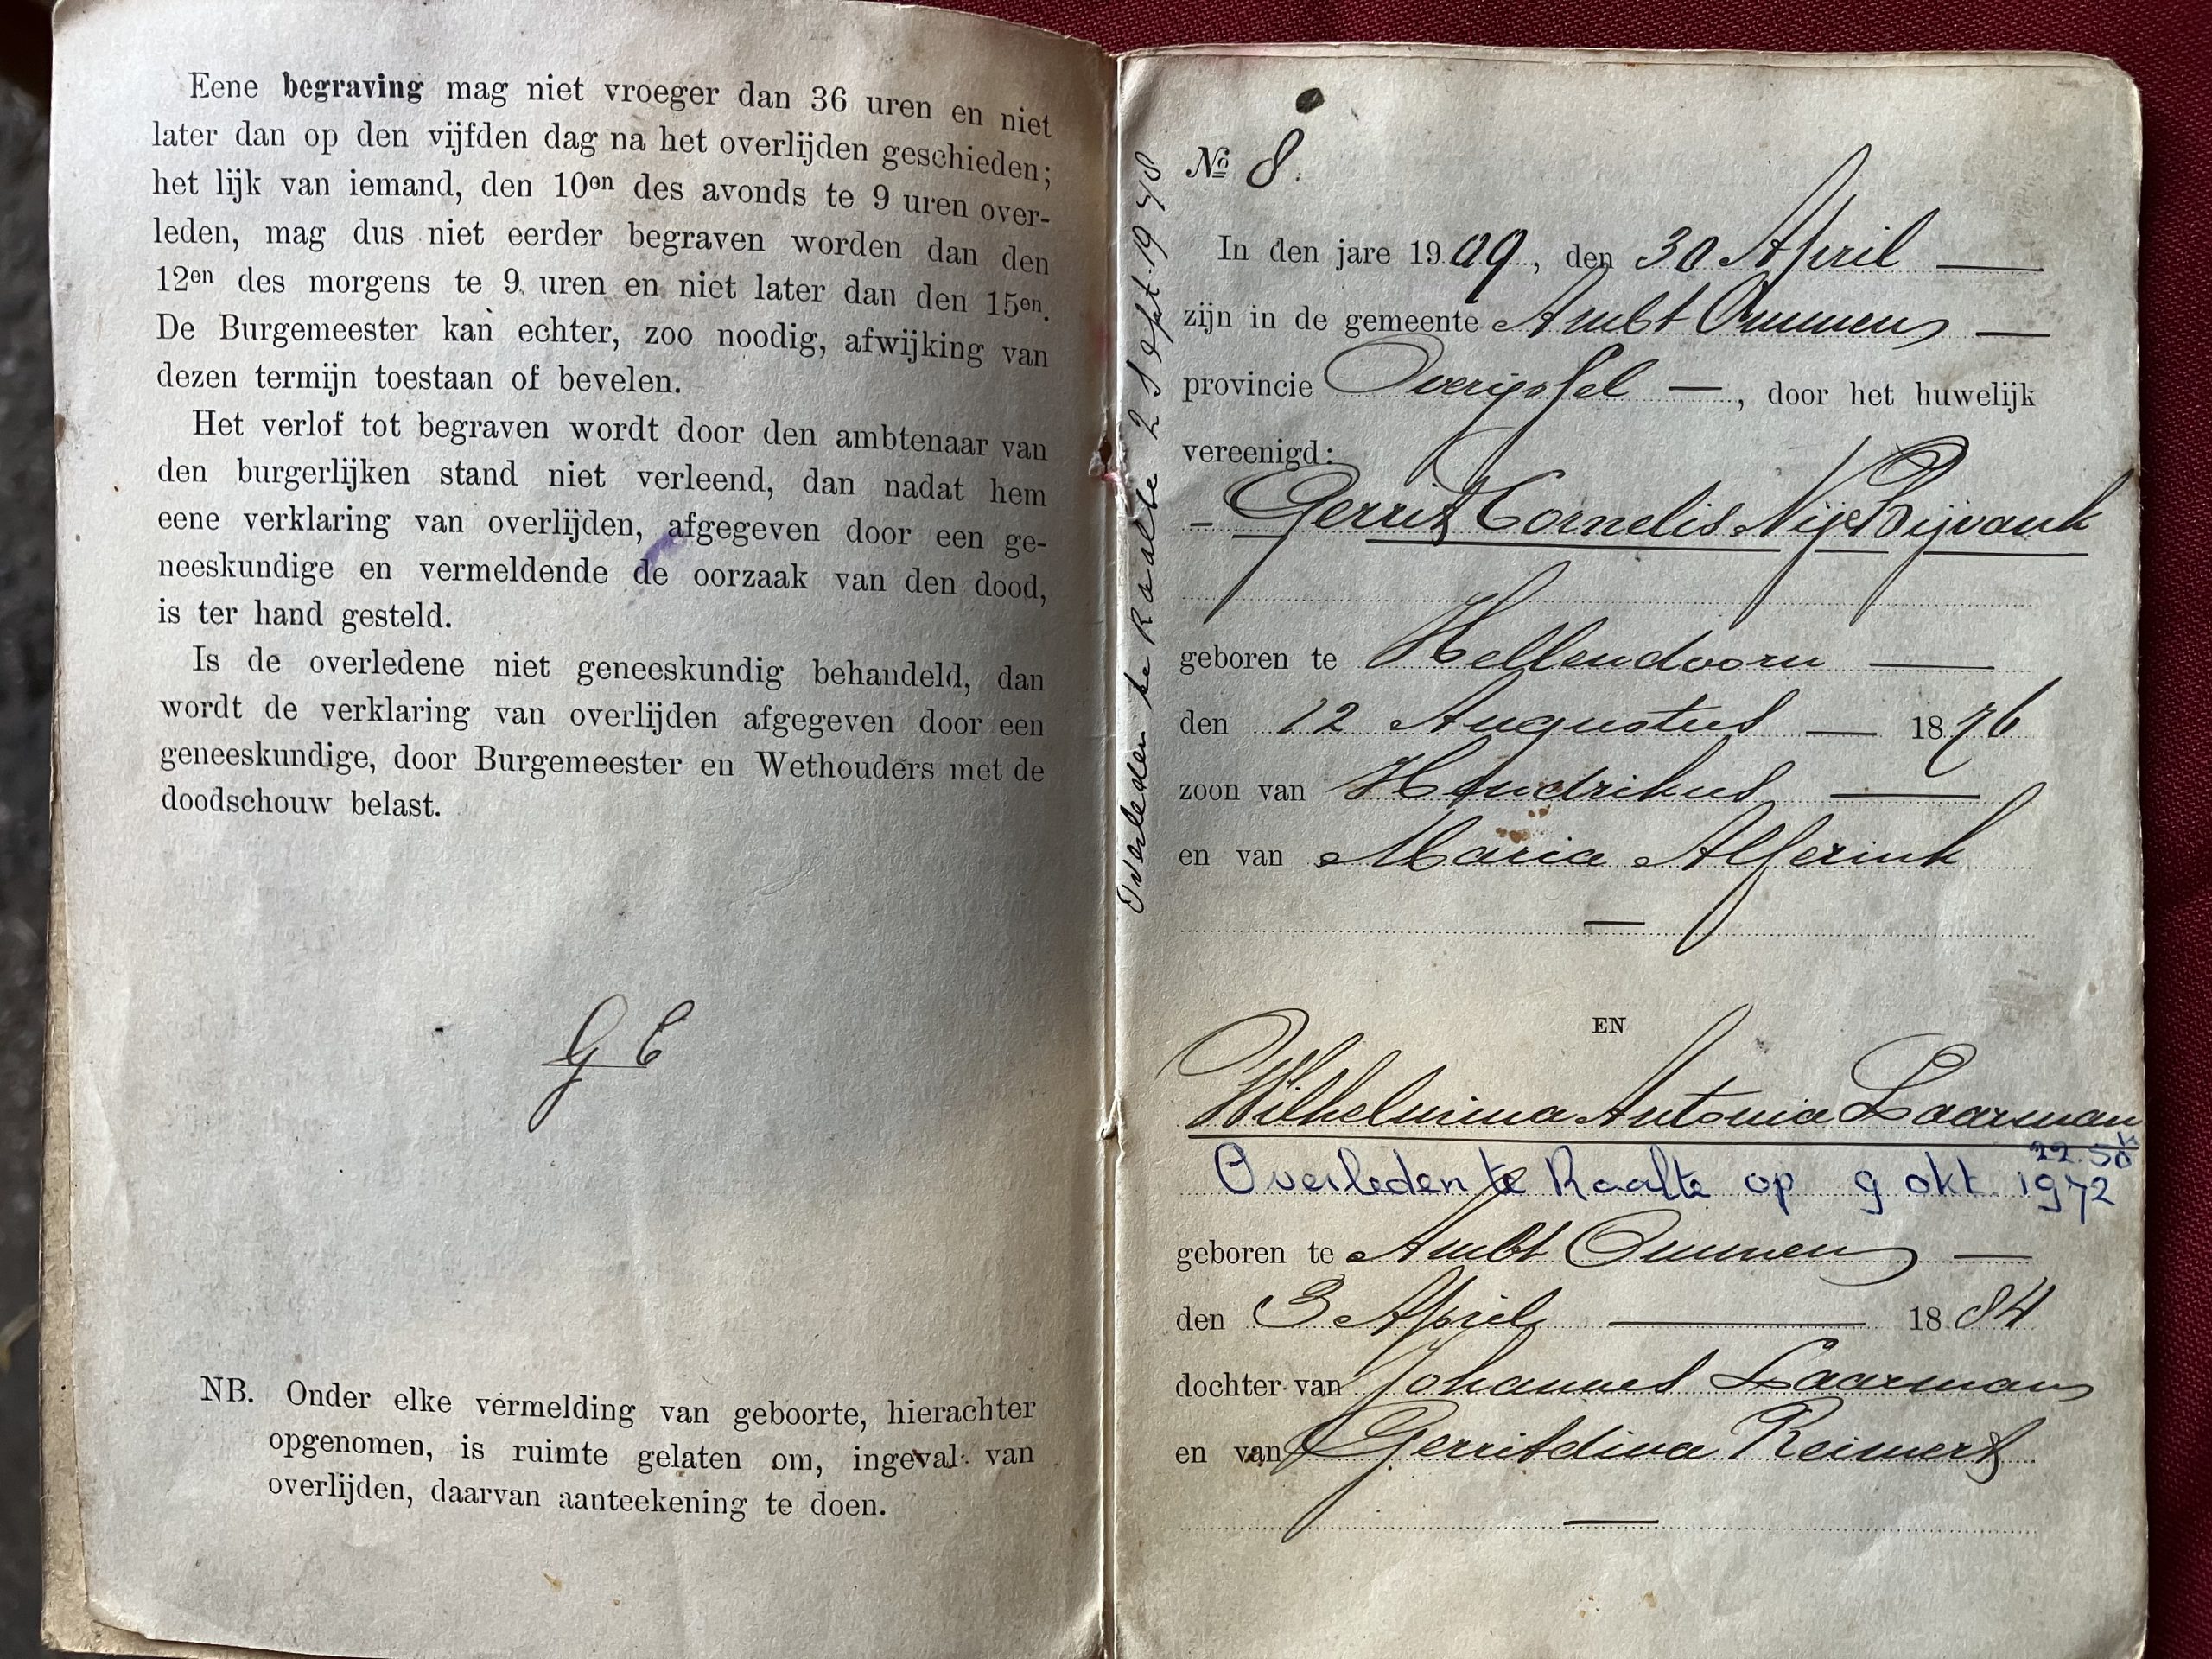 Eene begraving mag niet vroeger dan 36 uren en niet
later dan op den vijfden dag na het overlijden geschieden;
het lijk van iemand, den 10en des avonds te 9 uren over-
leden, mag dus niet eerder begraven worden dan den
12en des morgens te 9 uren en niet later dan den 15en.
De Burgemeester kan echter, zoo noodig, afwijking van
dezen termijn toestaan of bevelen.
Het verlof tot begraven wordt door den ambtenaar van
den burgerlijken stand niet verleend, dan nadat hem
eene verklaring van overlijden, afgegeven door een ge-
neeskundige en vermeldende de oorzaak van den dood,
is ter hand gesteld.
Is de overledene niet geneeskundig behandeld, dan
wordt de verklaring van overlijden afgegeven door een
geneeskundige, door Burgemeester en Wethouders met de
doodschouw belast.
G C
NB. Onder elke vermelding van geboorte, hierachter
opgenomen, is ruimte gelaten om, ingeval van
overlijden, daarvan aanteekening te doen.
Overleden te Raalte 2 Sept. 19
No 8.
In den jare 1909, den 30 April
zijn in de gemeente Ambt Ommen
provincie Overijssel, door het huwelijk
vereenigd:
Gerrit Cornelis Nije Bijvank
geboren te Hellendoorn
den 12 Augustus 1876
zoon van Hendrikus
en van Maria Alferink
EN
Wilhelmina Antonia Laarman
22.50
Overleden te Raalte op 9 okt 1972
geboren te Ambt Ommen
den 3 April 1884
dochter van Johannes Laarman
en van Gerritdina Reimert